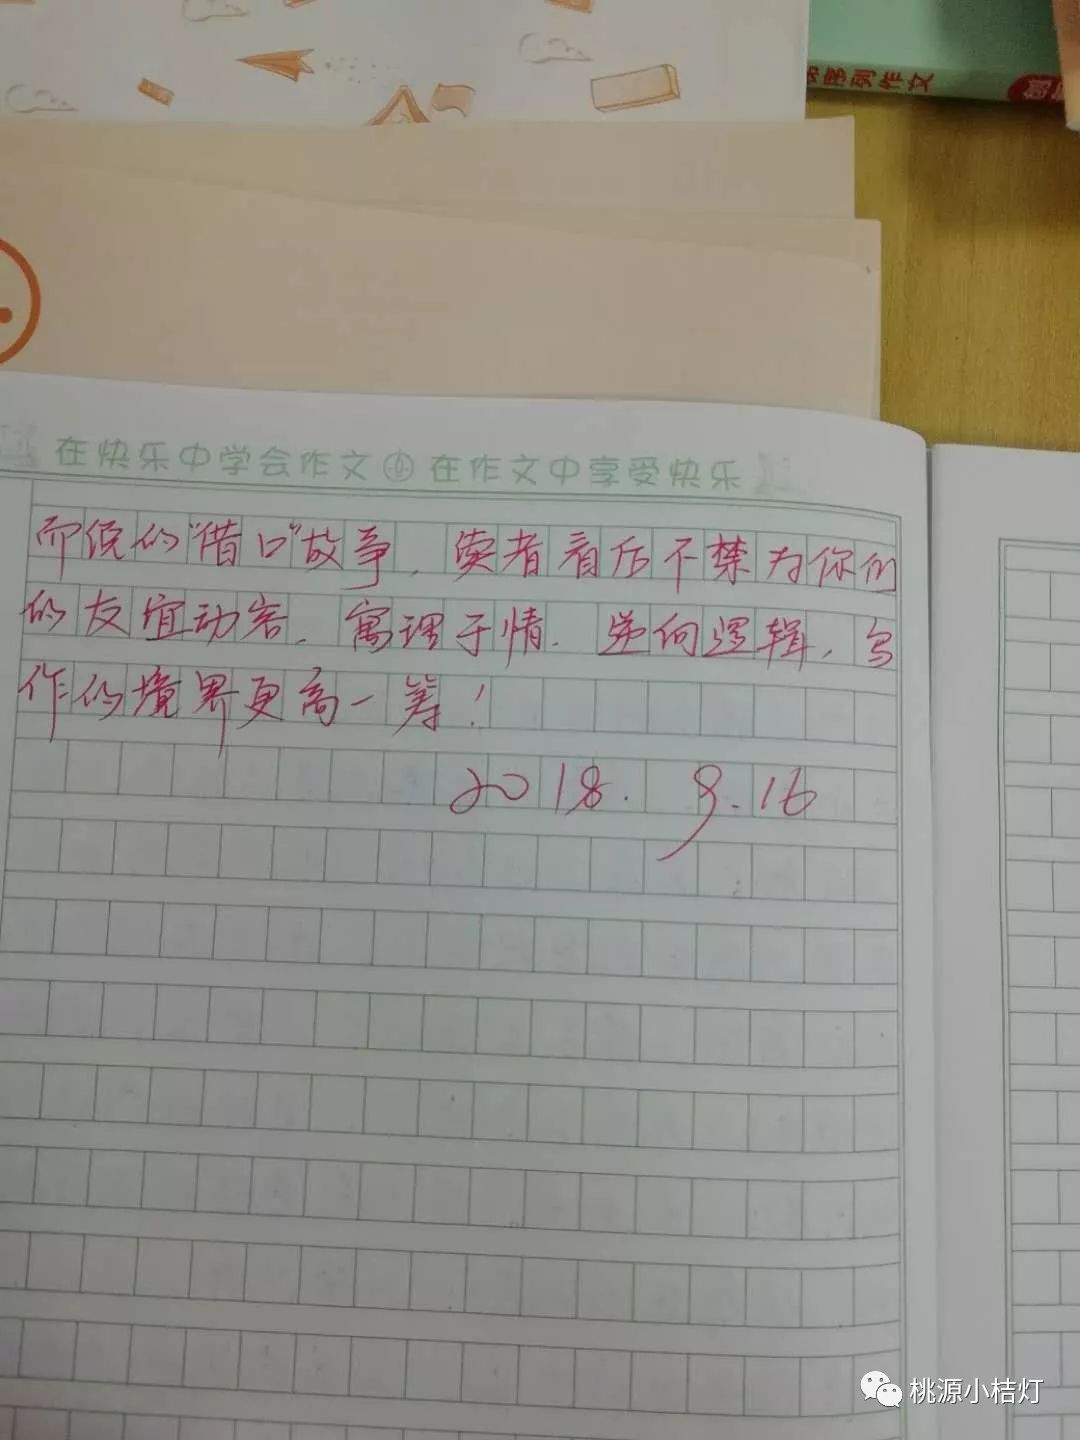 序列作文
在快乐中学会作文 在作文中享受快乐
而说的“借口”故事，读者看后不禁为你们
的友谊动容，寓理于情，逆向逻辑，写
作的境界更高一筹！
2018. 9.16
桃源小桔灯